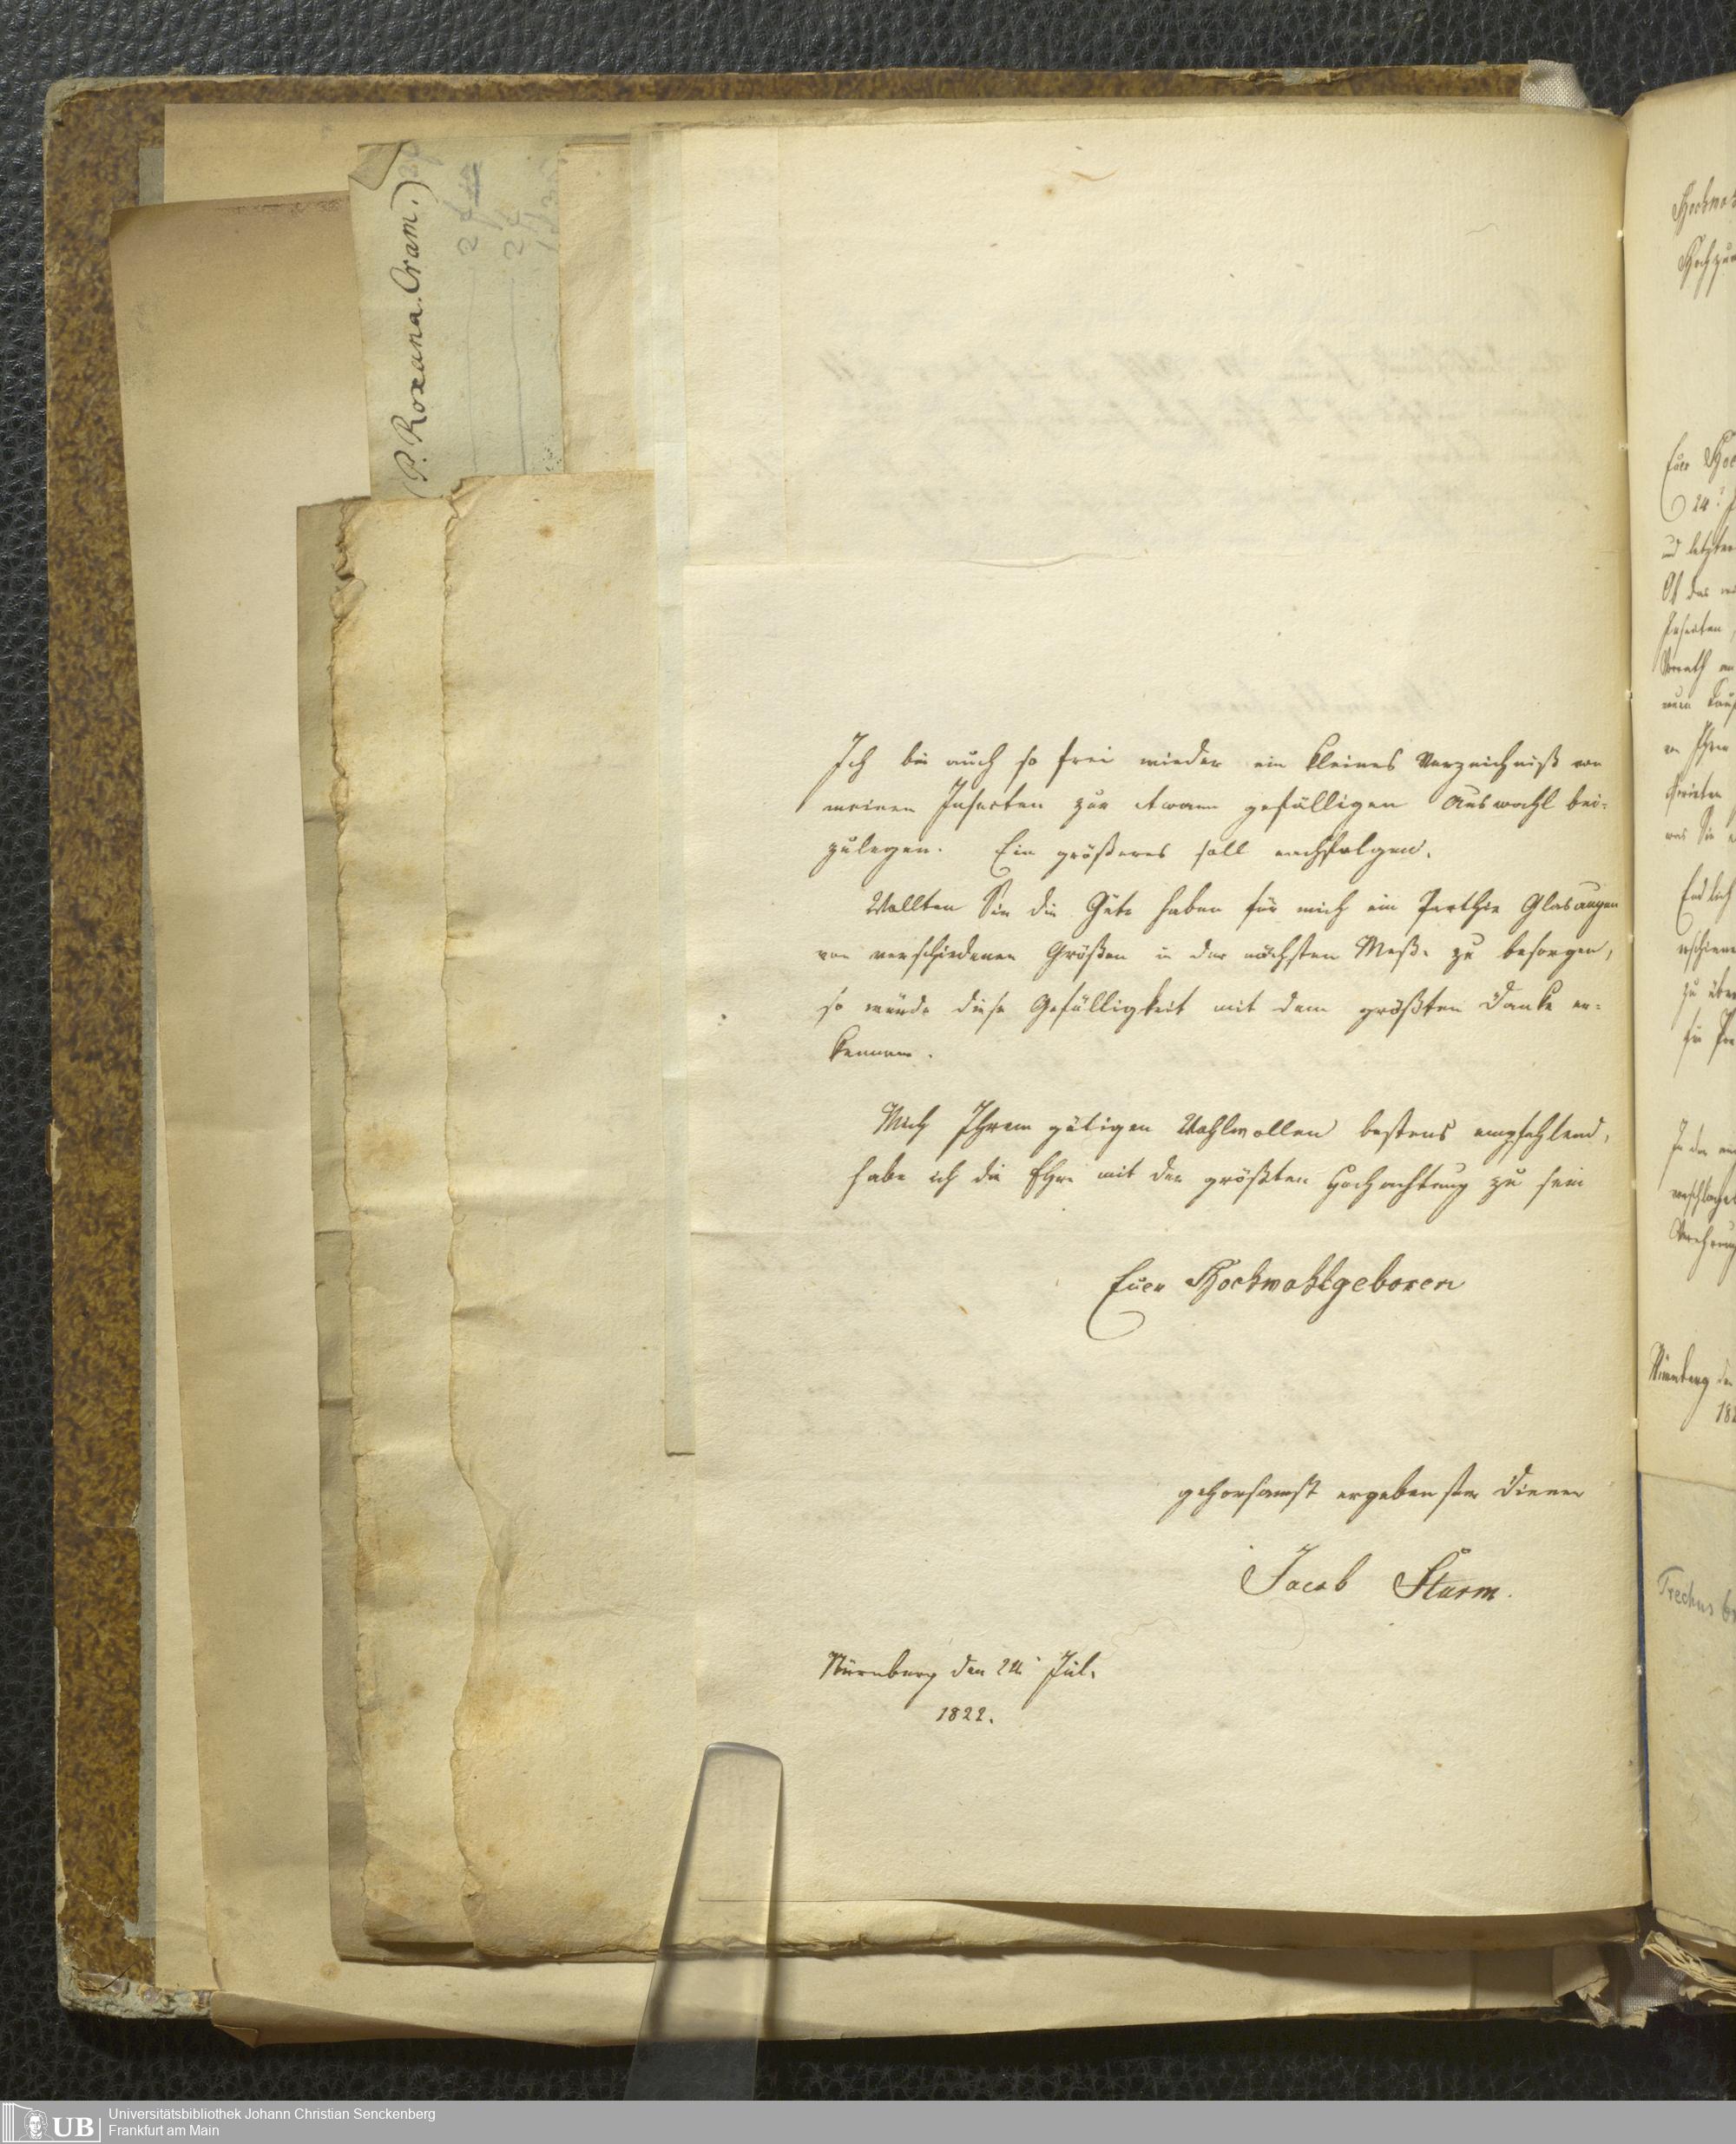 (P. Roxana. Cram.)
Ich bin auch so frei wieder ein kleines Verzeichniß von
meinen Insecten zur etwann gefälligen Auswahl bei-
zulegen. Ein größeres soll nachfolgen.
Wollten Sie die Güte haben für mich ein Parthie Glasaugen
von verschiedenen Größen in der nächsten Messe zu besorgen,
so würde diese Gefälligkeit mit dem größten Danke er-
kennen.
Mich Ihrem gütigen Wohlwollen bestens empfehlend,
habe ich die Ehre mit der größten Hochachtung zu sein
Euer Hochwohlgeboren
gehorsamst ergebenster Diener
Jacob Sturm.
Nürnberg den Jul.
1822.
Euer
24
und letzten
Insecten
Endlich
Nürnberg
Trechus
UB
Universitätsbibliothek Johann Christian Senckenberg
Frankfurt am Main